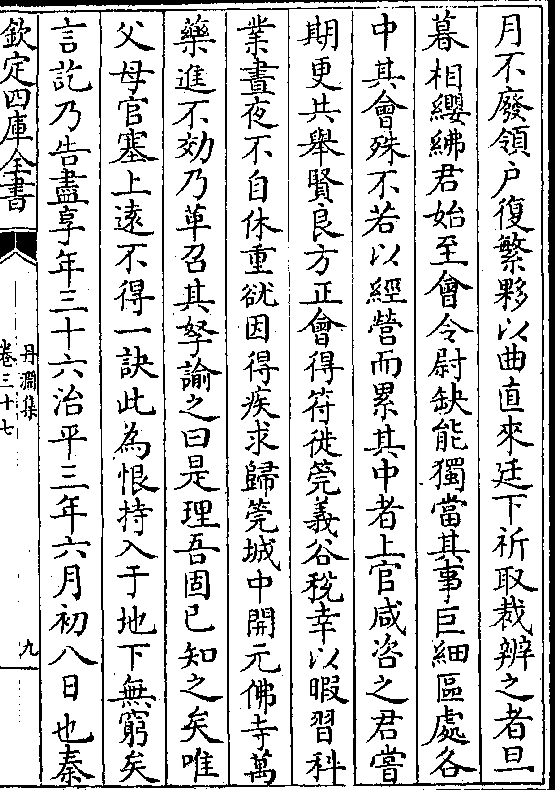 月不廢領户復繁夥以曲直來廷下祈取裁辨之者旦
暮相纓紼君始至會令尉缺能獨當其事巨細區處各
中其會殊不若以經營而累其中者上官咸咨之君嘗
期更共舉賢良方正會得符徙筦義谷稅幸以暇習科
業晝夜不自休重欲因得疾求歸筦城中開元佛寺萬
藥進不効乃草召其孥諭之曰是理吾固已知之矣唯
父母官塞上遠不得一訣此為恨持入于地下無窮矣
言訖乃告盡享年三十六治平三年六月初八日也秦
欽定四庫全書
丹淵集
卷三十七
九